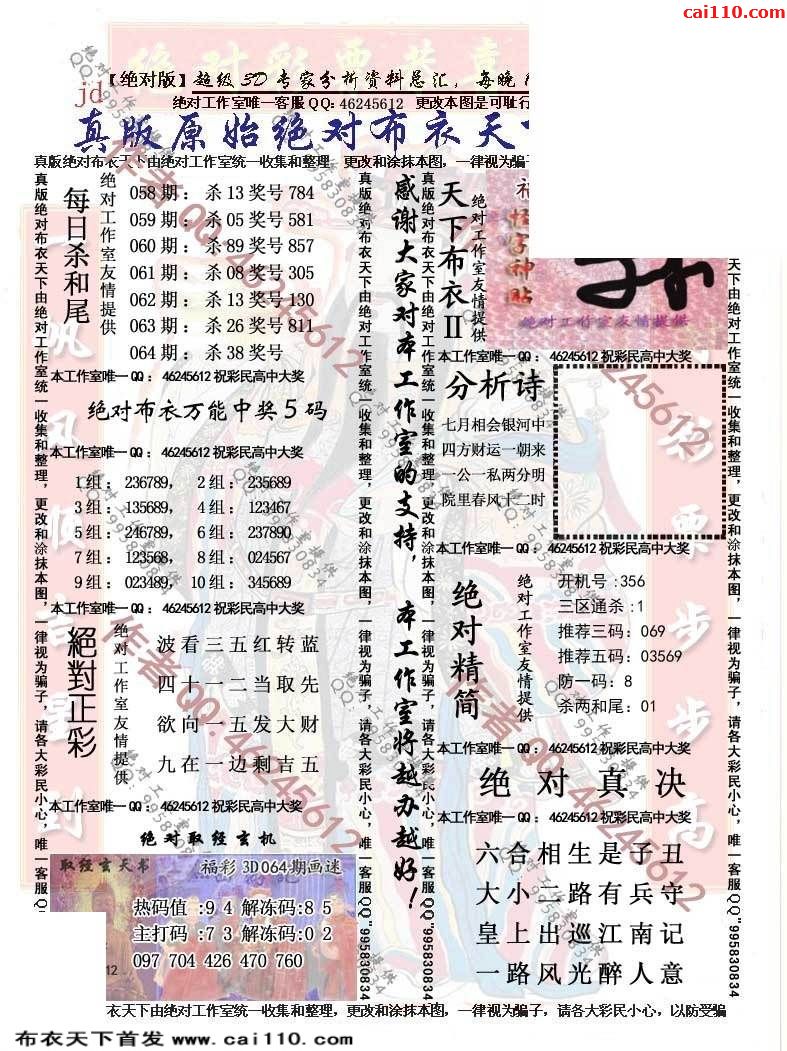 cai110.com
【绝对版】超级3D专家分析资料总汇，每晚
jd
绝对工作室唯一客服QQ:46245612 更改本图是可耻行
真版原始绝对布衣天
真版绝对布衣天下由绝对工作室统一收集和整理，更改和涂抹本图，一律视为骗子
每日杀和尾
绝对工作室友情提供
058期：杀13奖号784
059期：杀05奖号581
060期：杀89奖号857
061期：杀08奖号305
062期：杀13奖号130
063期：杀26奖号811
064期：杀38奖号
本工作室唯一QQ：46245612祝彩民高中大奖
绝对布衣万能中奖5码
本工作室唯一QQ：46245612祝彩民高中大奖
1组：236789， 2组：235689
3组：135689， 4组：123467
5组：246789， 6组：237890
7组：123568， 8组：024567
9组：023489， 10组：345689
本工作室唯一QQ：46245612祝彩民高中大奖
絕對正彩
绝对工作室友情提供
波看三五红转蓝
四十一二当取先
欲向一五发大财
九在一边剩吉五
本工作室唯一QQ：46245612祝彩民高中大奖
绝对取经玄机
取经玄天书 福彩3D064期画迷
热码值:94解冻码:85
主打码:73解冻码:02
097 704 426 470 760
12
真版绝对布衣天下由绝对工作室统一收集和整理，更改和涂抹本图，一律视为骗子，请各大彩民小心，唯一客服QQ"995830834
感谢大家对本工作室的支持，本工作室将越办越好！
天下布衣II
绝对工作室友情提供
怪字神贴
绝对工作室友情提供
本工作室唯一QQ：46245612祝彩民高中大奖
分析诗
七月相会银河中
四方财运一朝来
一公一私两分明
院里春风十二时
本工作室唯一QQ：46245612祝彩民高中大奖
绝对精简
绝对工作室友情提供
开机号:356
三区通杀:1
推荐三码：069
推荐五码：03569
防一码：8
杀两和尾：01
本工作室唯一QQ：46245612祝彩民高中大奖
绝对真决
本工作室唯一QQ：46245612祝彩民高中大奖
六合相生是子丑
大小二路有兵守
皇上出巡江南记
一路风光醉人意
天下由绝对工作室统一收集和整理，更改和涂抹本图，一律视为骗子，请各大彩民小心，唯一客服QQ"995830834
作者QQ:46245612
绝对工作室提供
QQ:995830834
衣天下由绝对工作室统一收集和整理，更改和涂抹本图，一律视为骗子，请各大彩民小心，以防受骗
布衣天下首发 www.cai110.com